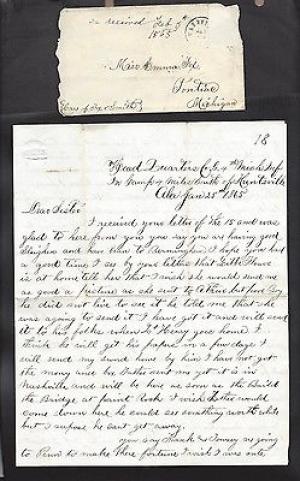 received Feb 5th
1865
Miss Emma
Pontiac
Michigan
Care of Fox & Smith
18
Head Quarters Co. G. 4th Mich Inf
In Camp 4 miles South of Huntsville
Ala Jan 25th 1865
Dear Sister
I received your letter of the 15 and was
glad to hear from you you say you are having good
Sleighing and have been to Birmingham I hope you had
a good time I see by your letter that
is at home tell her that I wish she would send me
as good a picture as she sent to but poor boy
he did not live to see it he told me that she
was going to send it I have got it and will send
it to his folks when Henry goes home I
think he will get his papers in a few days I
will send my home by him I have not got
the money one he sent me yet it is in
Nashville and will be here as soon as they build
the Bridge at paint rock I wish Father would
come down here he could see something worth while
but I suppose he cant get away
you say Frank & are going
to to make there fortune I wish I was one